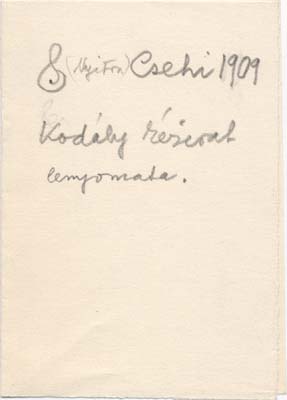 (Nyitra) Csehi 1909
Kodály kézirat
lenyomata.